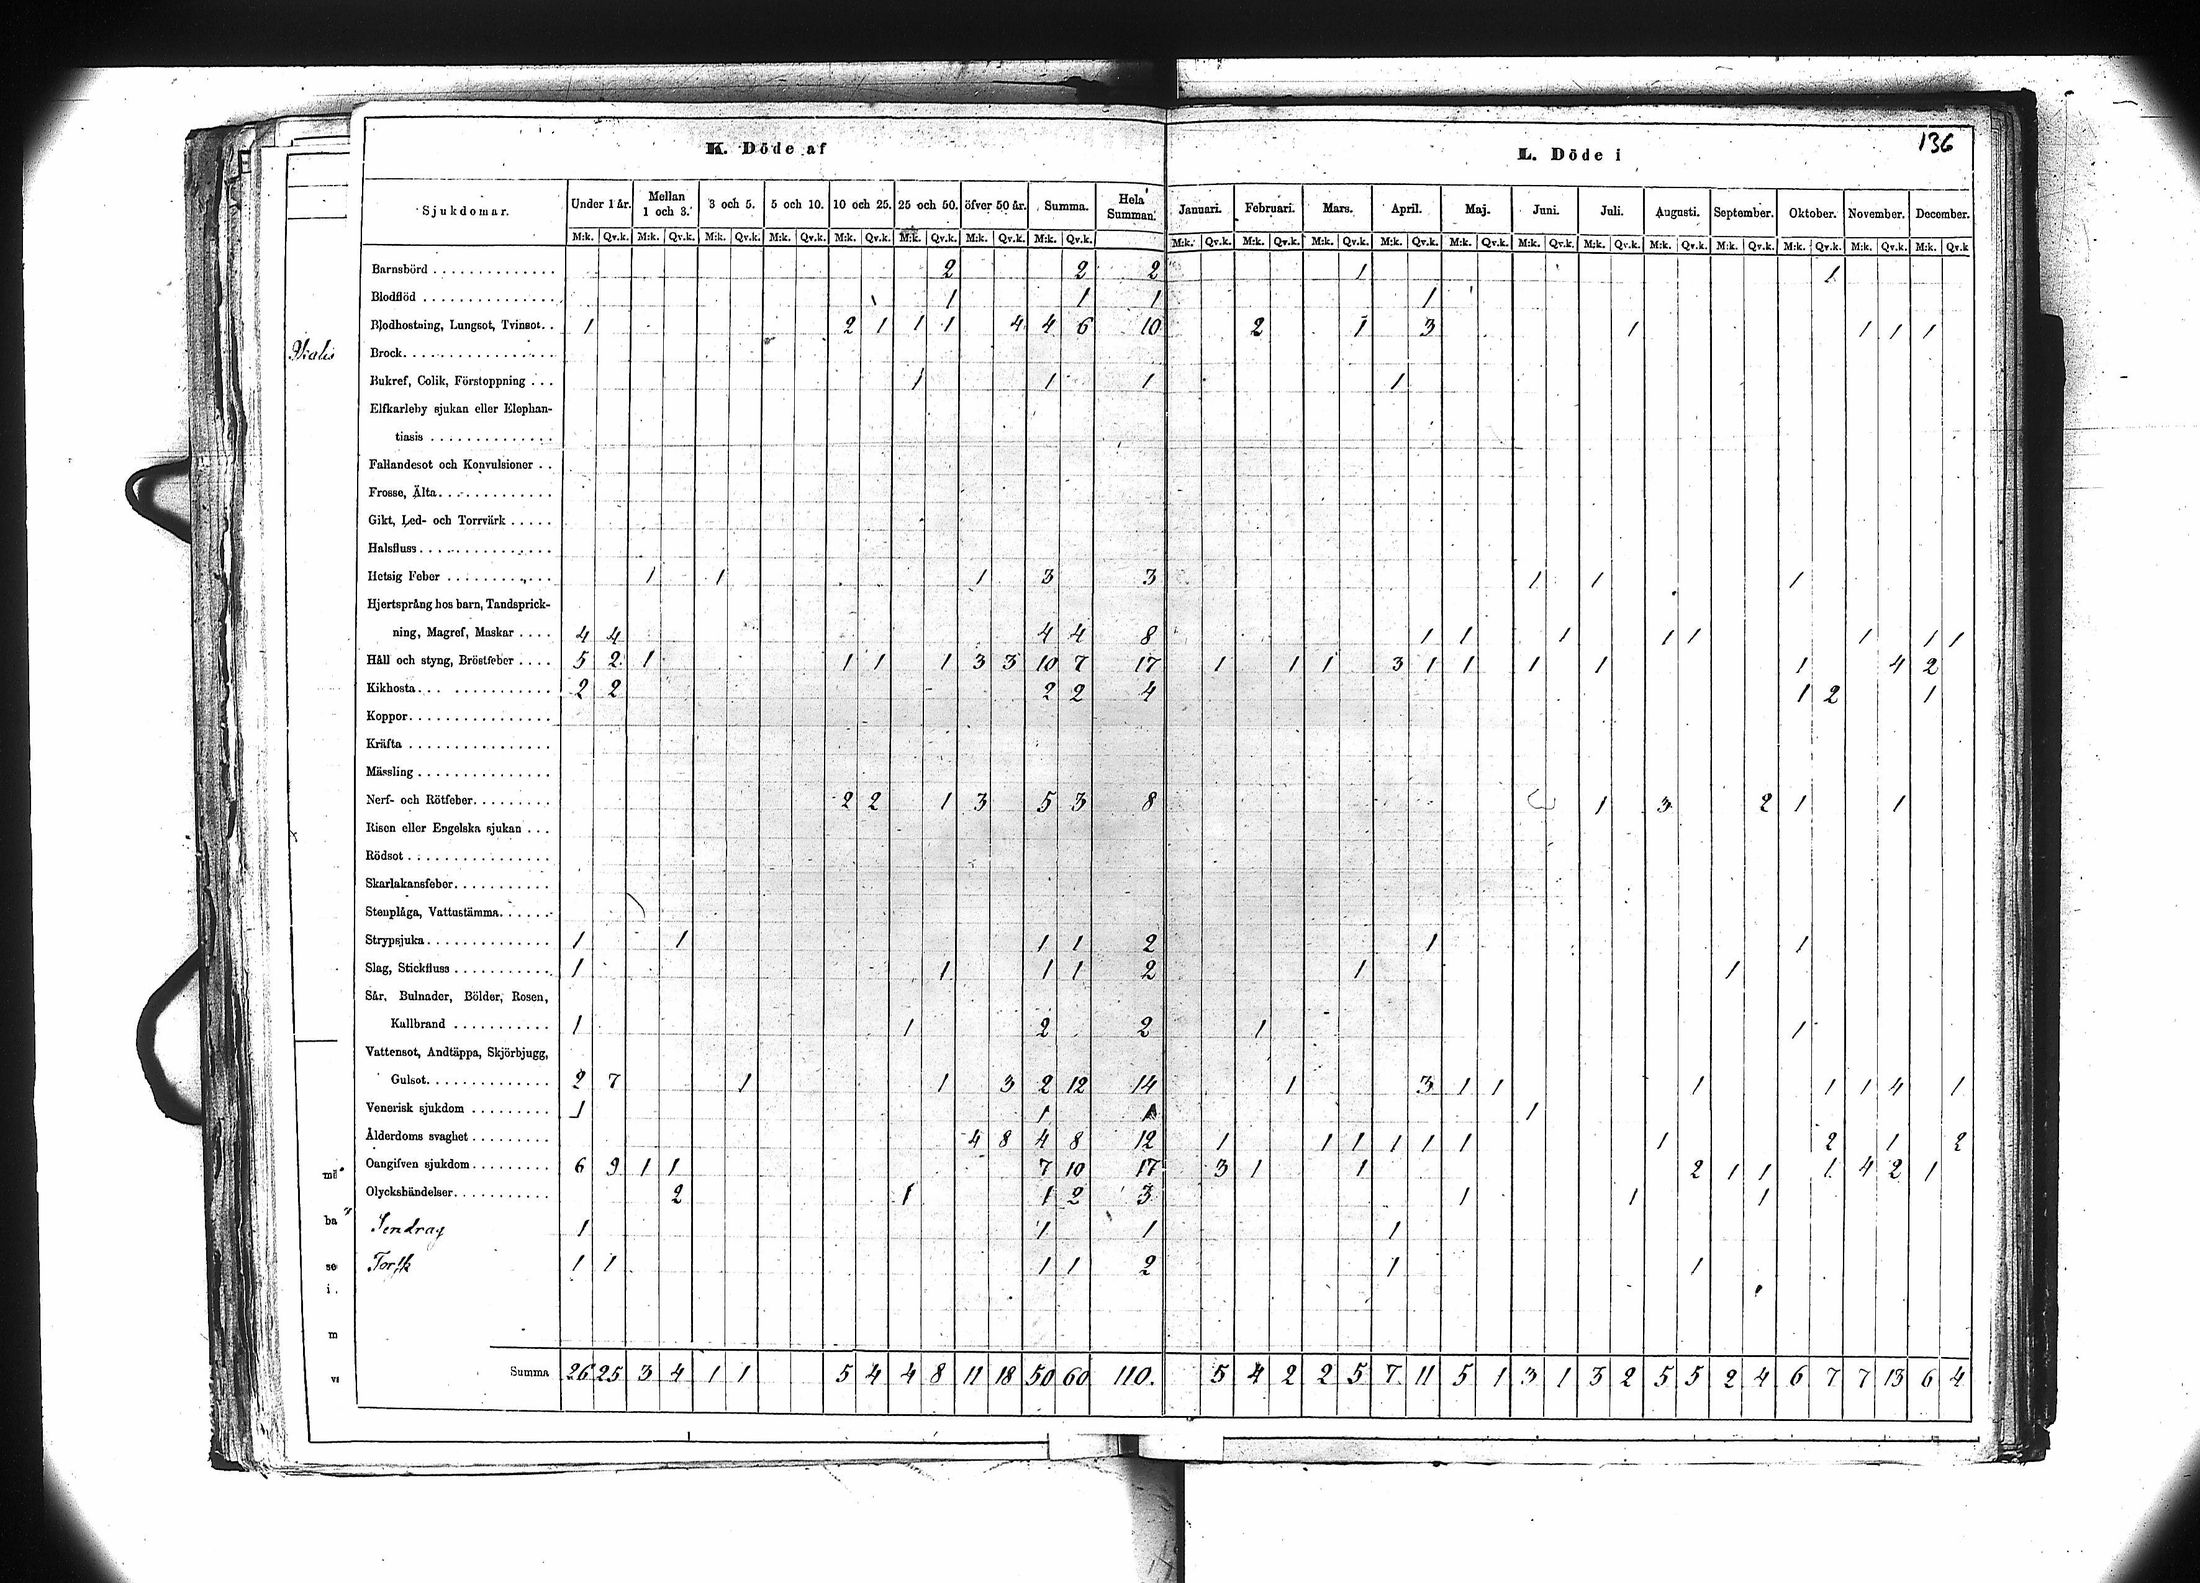 136
K. Döde af
L. Döde i
Sjukdomar. Under 1 år. Mellan 1 och 3. 3 och 5. 5 och 10. 10 och 25. 25 och 50. öfver 50 år. Summa. Hela Summan. Januari. Februari. Mars. April. Maj. Juni. Juli. Augusti. September. Oktober. November. December.
M:k. Qv.k. M:k. Qv.k. M:k. Qv.k. M:k. Qv.k. M:k. Qv.k. M:k. Qv.k. M:k. Qv.k. M:k. Qv.k. M:k. Qv.k. M:k. Qv.k. M:k. Qv.k. M:k. Qv.k. M:k. Qv.k. M:k. Qv.k. M:k. Qv.k. M:k. Qv.k. M:k. Qv.k. M:k. Qv.k. M:k. Qv.k. M:k. Qv.k
Barnsbörd 2 2 2 1 1
Blodflöd 1 1 1 1
Blodhostning, Lungsot, Tvinsot. 1 2 1 1 1 4 4 6 10 2 1 3 1 1 1 1
Brock
Bukref, Colik, Förstoppning 1 1 1 1
Elfkarleby sjukan eller Elephan-
tiasis
Fallandesot och Konvulsioner
Frosse, Älta
Gikt, Led- och Torrvärk
Halsfluss
Hetsig Feber 1 1 1 3 3 1 1 1
Hjertsprång hos barn, Tandsprick-
ning, Magref, Maskar 4 4 4 4 8 1 1 1 1 1 1 1 1
Håll och styng, Bröstfeber 5 2 1 1 1 1 3 3 10 7 17 1 1 1 3 1 1 1 1 1 4 2
Kikhosta 2 2 2 2 4 1 2 1
Koppor
Kräfta
Mässling
Nerf- och Rötfeber 2 2 1 3 5 3 8 1 3 2 1 1
Risen eller Engelska sjukan
Rödsot
Skarlakansfeber
Stenplåga, Vattustämma
Strypsjuka 1 1 1 1 2 1 1
Slag, Stickfluss 1 1 1 1 2 1 1
Sår, Bulnader, Bölder, Rosen,
Kallbrand 1 1 2 2 1 1
Vattensot, Andtäppa, Skjörbjugg,
Gulsot 2 7 1 1 3 2 12 14 1 3 1 1 1 1 1 4 1
Venerisk sjukdom 1 1 1 1
Ålderdoms svaghet 4 8 4 8 12 1 1 1 1 1 1 1 2 1 2
Oangifven sjukdom 6 9 1 1 7 10 17 3 1 1 2 1 1 1 4 2 1
Olyckshändelser 2 1 1 2 3 1 1 1
Sendrag 1 1 1 1
Torsk 1 1 1 1 2 1 1
Summa 26 25 3 4 1 1 5 4 4 8 11 18 50 60 110. 5 4 2 2 5 7 11 5 1 3 1 3 2 5 5 2 4 6 7 7 13 6 4